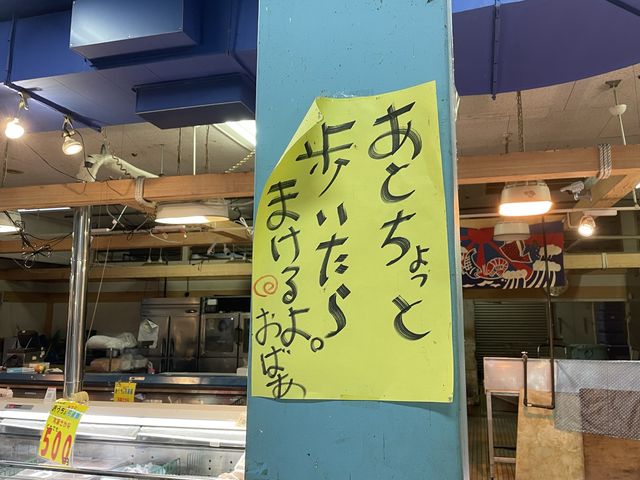 あとちょっと
歩いたら
まけるよ。
おばあ
500